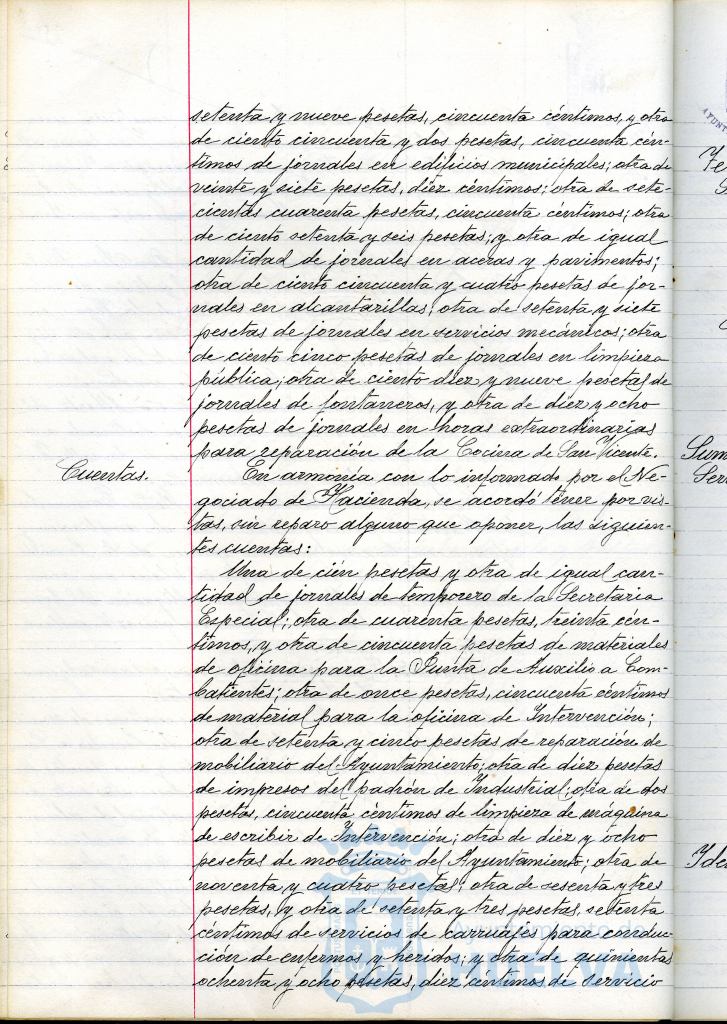 setenta y nueve pesetas, cincuenta céntimos, y otra
de ciento cincuenta y dos pesetas, cincuenta cén-
timos de jornales en edificios municipales; otra de
veinte y siete pesetas, diez céntimos; otra de sete-
cientas cuarenta pesetas, cincuenta céntimos; otra
de ciento setenta y seis pesetas; y otra de igual
cantidad de jornales en aceras y pavimentos;
otra de ciento cincuenta y cuatro pesetas de jor-
nales en alcantarillas; otra de setenta y siete
pesetas de jornales en servicios mecánicos; otra
de ciento cinco pesetas de jornales en limpieza
pública; otra de ciento diez y nueve pesetas de
jornales de fontaneros, y otra de diez y ocho
pesetas de jornales en horas extraordinarias
para reparación de la Cocina de San Vicente.
Cuentas.
En armonía con lo informado por el Ne-
gociado de Hacienda, se acordó tener por vis-
tas, sin reparo alguno que oponer, las siguien-
tes cuentas:
Una de cien pesetas y otra de igual can-
tidad de jornales de temporero de la Secretaria
Especial; otra de cuarenta pesetas, treinta cén-
timos, y otra de cincuenta pesetas de materiales
de oficina para la Junta de Auxilio a Com-
batientes; otra de once pesetas, cincuenta céntimos
de material para la oficina de Intervención;
otra de setenta y cinco pesetas de reparación de
mobiliario del Ayuntamiento; otra de diez pesetas
de impresos del padrón de Industrial; otra de dos
pesetas, cincuenta céntimos de limpieza de máquina
de escribir de Intervención; otra de diez y ocho
pesetas de mobiliario del Ayuntamiento; otra de
noventa y cuatro pesetas; otra de sesenta y tres
pesetas, y otra de setenta y tres pesetas, setenta
céntimos de servicios de carruajes para conduc-
ción de enfermos y heridos; y otra de quinientas
ochenta y ocho pesetas, diez céntimos de servicio
Ayuntamiento
HUELVA
Sum
Ser
Ide